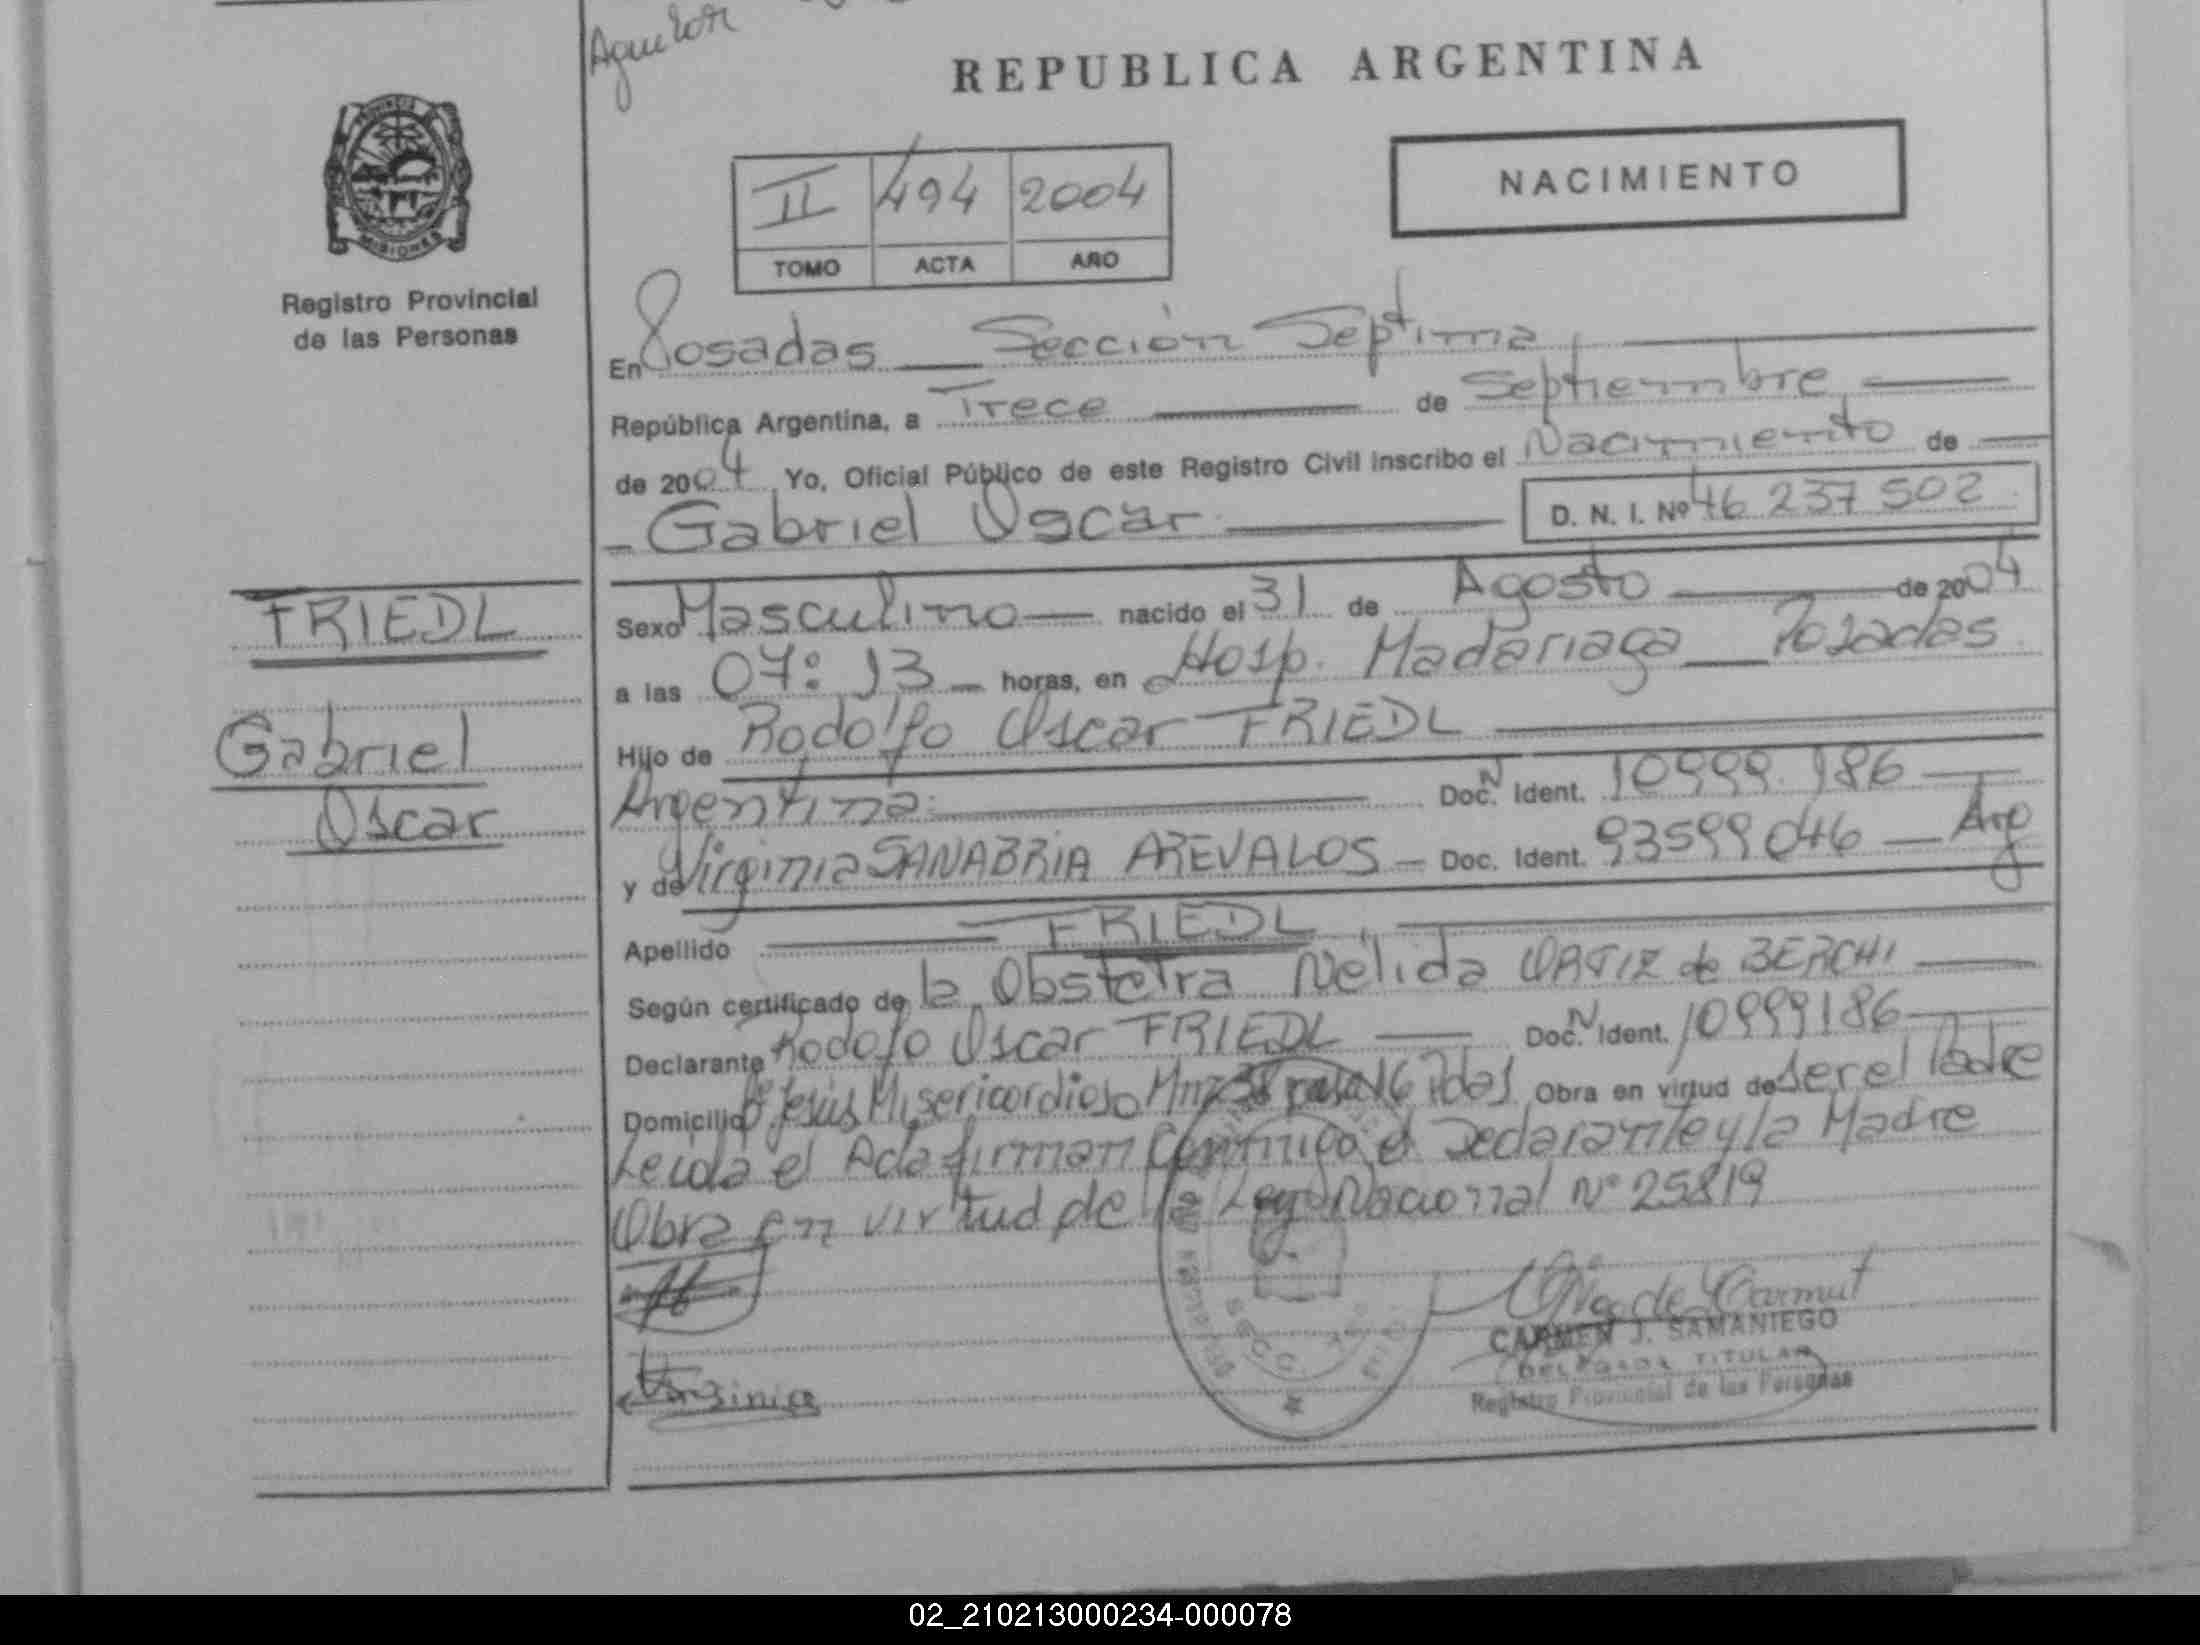 Aguilar
REPUBLICA ARGENTINA
PROVINCIA
MISIONES
Registro Provincial
de las Personas
II 494 2004
TOMO ACTA AÑO
NACIMIENTO
En Posadas Sección Septima
República Argentina, a Trece de Septiembre
de 2004 Yo, Oficial Público de este Registro Civil Inscribo el Nacimiento de
Gabriel Oscar D. N. I. Nº 46 237 502
FRIEDL
Gabriel
Oscar
Sexo Masculino nacido el 31 de Agosto de 2004
a las 07:13 horas, en Hosp. Madariaga Posadas
Hijo de Rodolfo Oscar FRIEDL
Argentina Doc. N Ident. 10999.186
y de Virginia SANABRIA AREVALOS Doc. Ident. 93599046 Arg
Apellido FRIEDL
Según certificado de la Obstetra Nélida ORTIZ de BERCHI
Declarante Rodolfo Oscar FRIEDL Doc. N Ident. 10999186
Domicilio Bº Jesús Misericordioso Mnz 38 casa 16 Pdas Obra en virtud de ser el Padre
Leida el Acta firman Conmigo el Declarante y la Madre
Obra en virtud de la Ley Nacional Nº 25819
Virginia
SECC.
CARMEN J. SAMANIEGO
DELEGADA TITULAR
Registro Provincial de las Personas
02_210213000234-000078